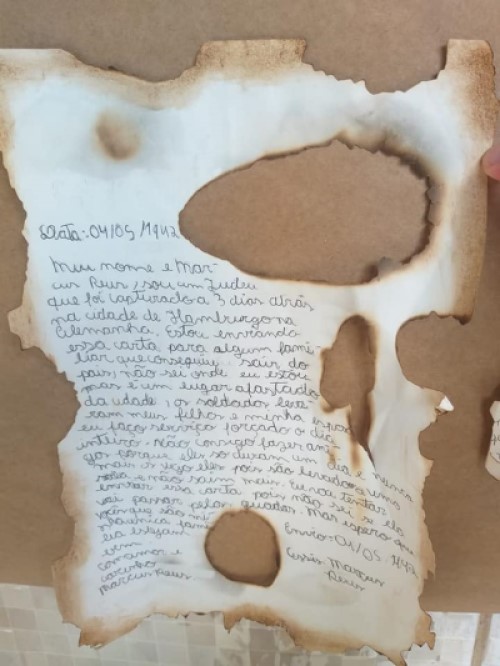 Data: 04/05/1942
Meu nome e Mar-
cus Reus, sou um Judeu
que foi capturado a 3 dias atrás
na cidade de Hamburgo na
Alemanha. Estou enviando
essa carta para algum fami-
liar que conseguiu sair do
pais, não sei onde eu estou
mas é um lugar afastado
da cidade, os soldados leva-
ram meus filhos e minha esposa
eu faço serviço forçado o dia
inteiro. Não consigo fazer ami-
gos porque eles so duram um dia e nunca
mais os vejo eles pois são levados a uma
sala e não saem mais. Eu vou tentar
enviar essa carta pois não sei se ela
vai passar pelos guardas. Mas espero que
vocês que são mi-
nha unica fami-
lia estejam
bem
com amor e
carinho
Marcus Reus
Envio: 04/05/1942
Marcus
Reus